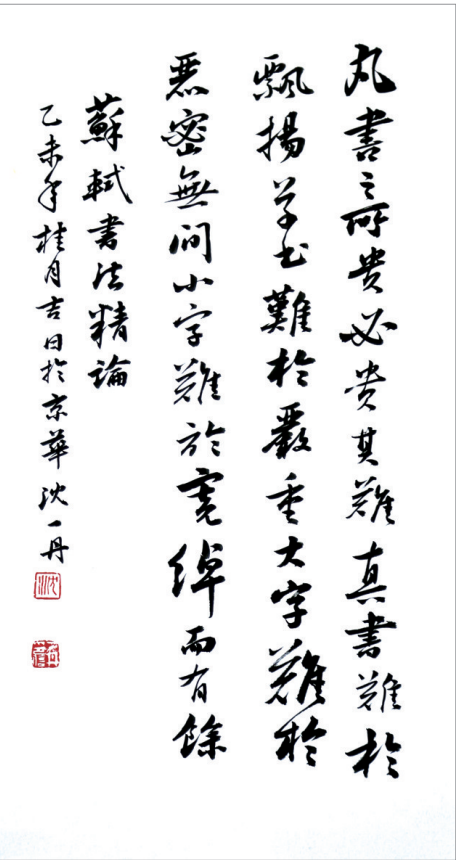 凡書之所貴必貴其難真書難於
飄揚草书難於嚴重大字難於
密無間小字難於寬綽而有餘
蘇軾書法精論
乙未年桂月吉日於京華沈一丹
沈